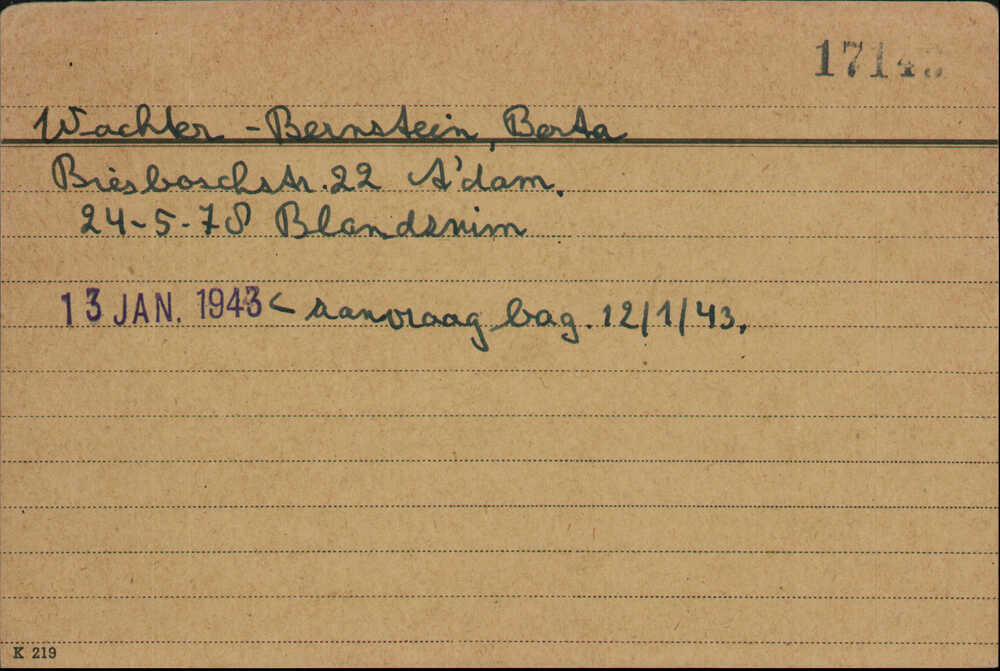 Wachter - Bernstein, Berta
Biesboschstr. 22 A'dam.
24-5-78 Blandsnim
13 JAN. 1943 < aanvraag bag. 12/1/43.
K 219